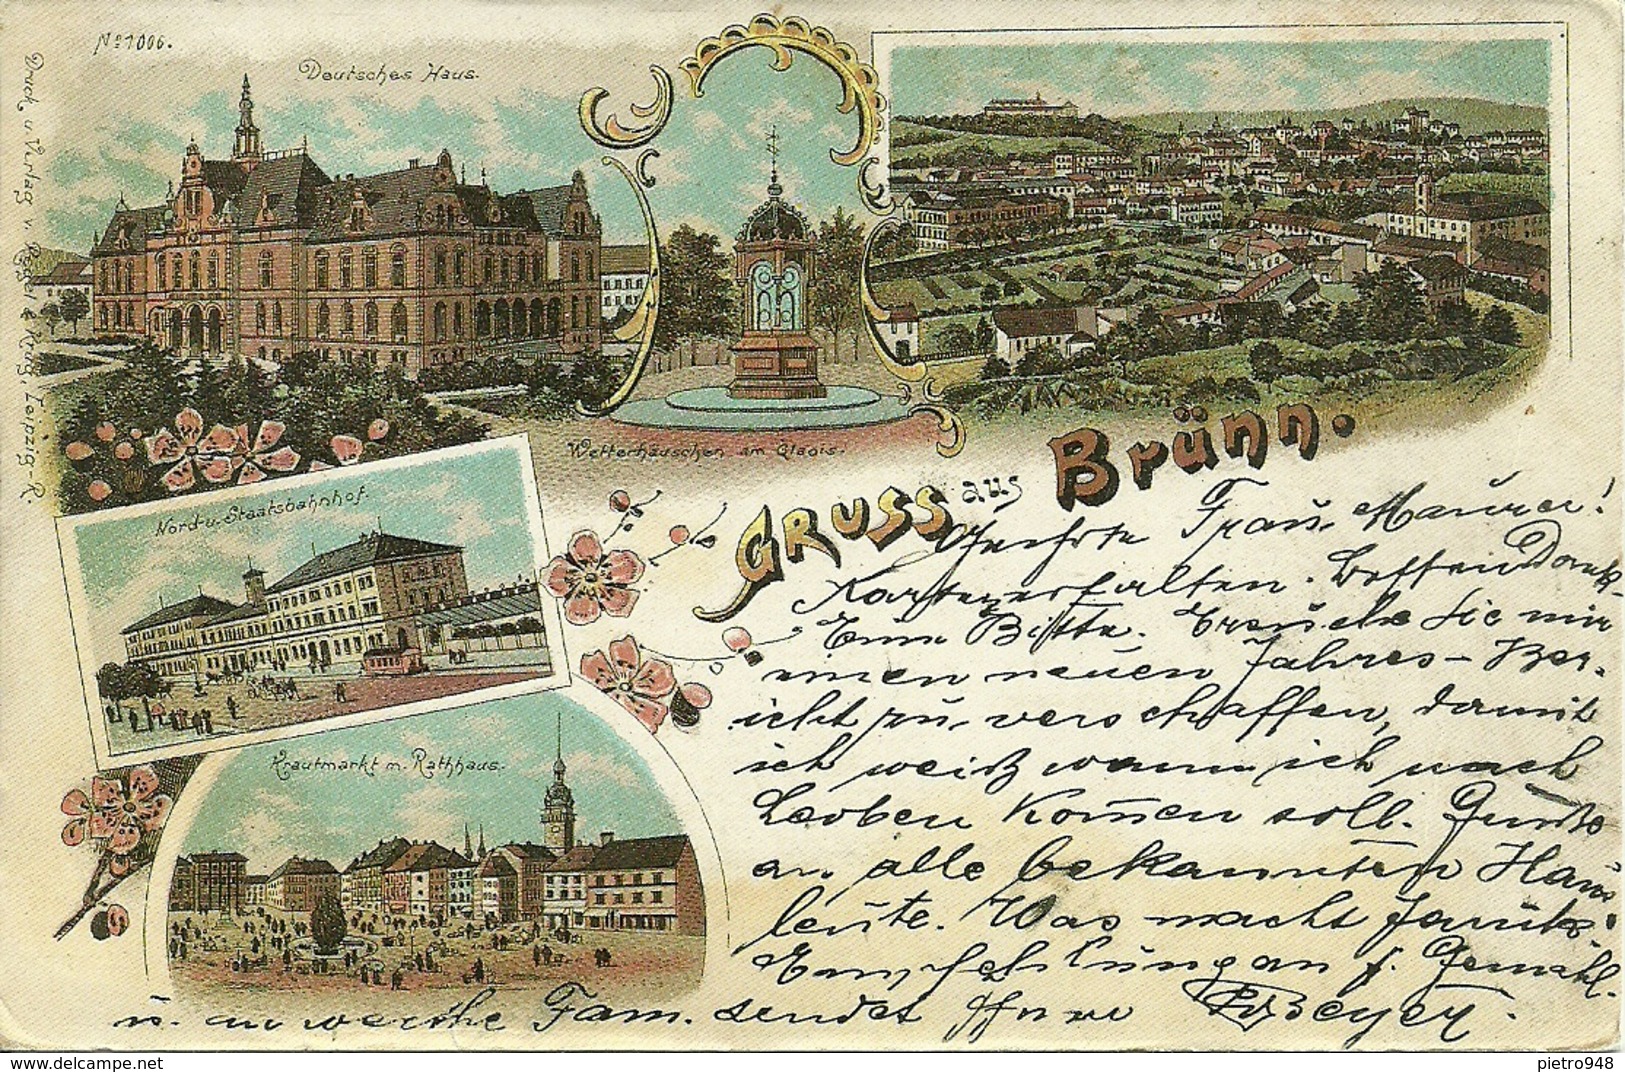 No 1006.
Deutsches Haus.
Druck u. Verlag v. Regel & Krug, Leipzig-R.
Wetterhäuschen am Glacis.
Gruss aus Brünn.
Nord- u. Staatsbahnhof.
Krautmarkt m. Rathhaus.
Geehrte Frau Maurer!
Karte erhalten. Besten Dank.
Eine Bitte. Ersuche Sie mir
einen neuen Jahres-Ber-
icht zu verschaffen, damit
ich weiß wann ich nach
Leoben kommen soll. Grüße
an alle bekannten Haus
leute. Was macht
Empfehlung an f. Gemahl.
u. an werthe Fam. sendet Ihnen Beyer.
pietro948